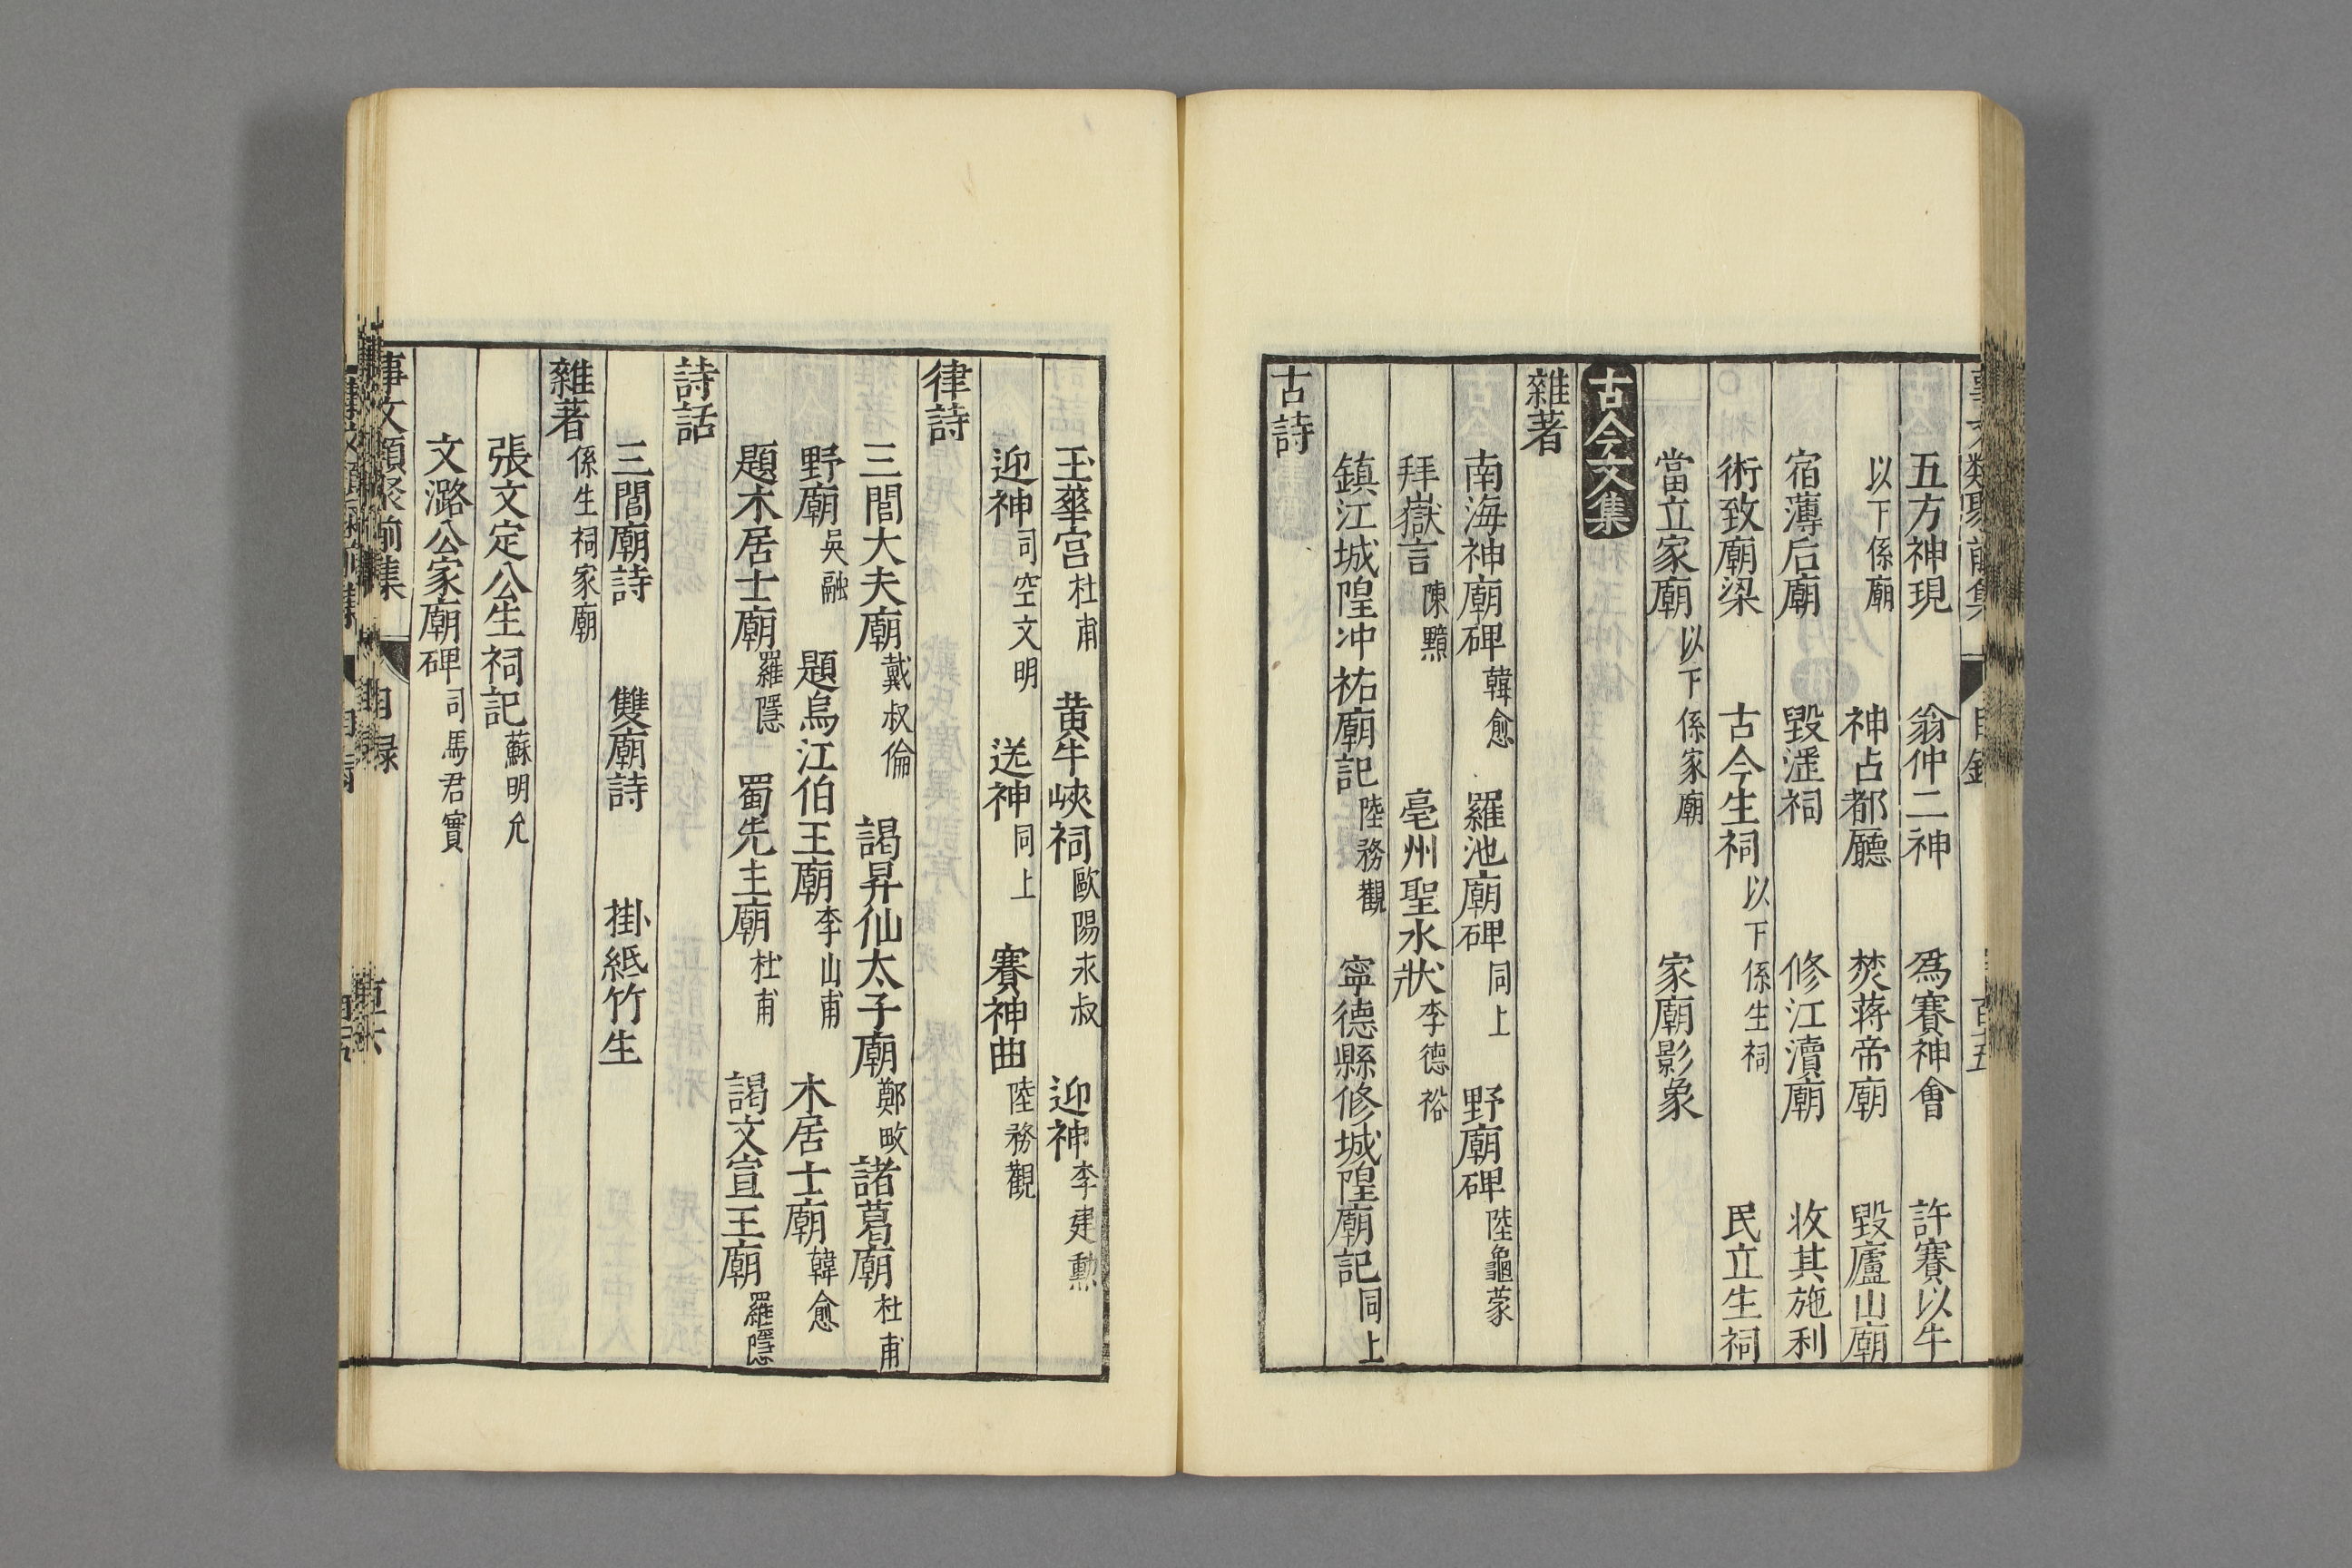 五方神現　翁仲二神　爲賽神會　許賽以牛
以下係廟　神占都廳　焚蒋帝廟　毀廬山廟
宿薄后廟　毀滛祠　修江瀆廟　收其施利
術致廟梁　古今生祠以下係生祠　民立生祠
當立家廟以下係家廟　家廟影象
古今文集
雜著
南海神廟碑韓愈　羅池廟碑同上　野廟碑陸龜蒙
拜嶽言陳黯　亳州聖水狀李德裕
鎮江城隍冲祐廟記陸務觀　寧德縣修城隍廟記同上
古詩
玉華宮杜甫　黄牛峽祠歐陽永叔　迎神李建勲
迎神司空文明　送神同上　賽神曲陸務觀
律詩
三閭大夫廟戴叔倫　謁昇仙太子廟鄭畋　諸葛廟杜甫
野廟吳融　題烏江伯王廟李山甫　木居士廟韓愈
題木居士廟羅隱　蜀先主廟杜甫　謁文宣王廟羅隱
詩話
三閭廟詩　雙廟詩　掛紙竹生
雜著係生祠家廟
張文定公生祠記蘇明允
文潞公家廟碑司馬君實
事文類聚前集　目録